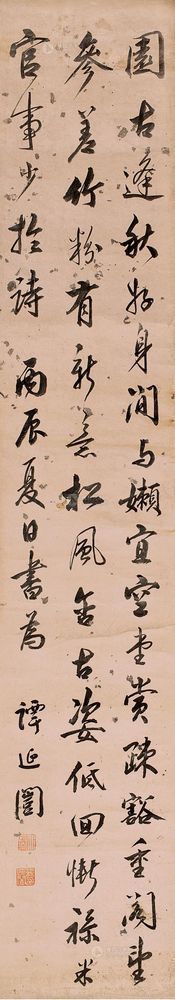 園古逢秋好身閒与嬾宜空堂賞疎豁重閣望
參差竹粉有新意松風含古姿低回慚祿米
官事少於詩 丙辰夏日書為 譚延闓